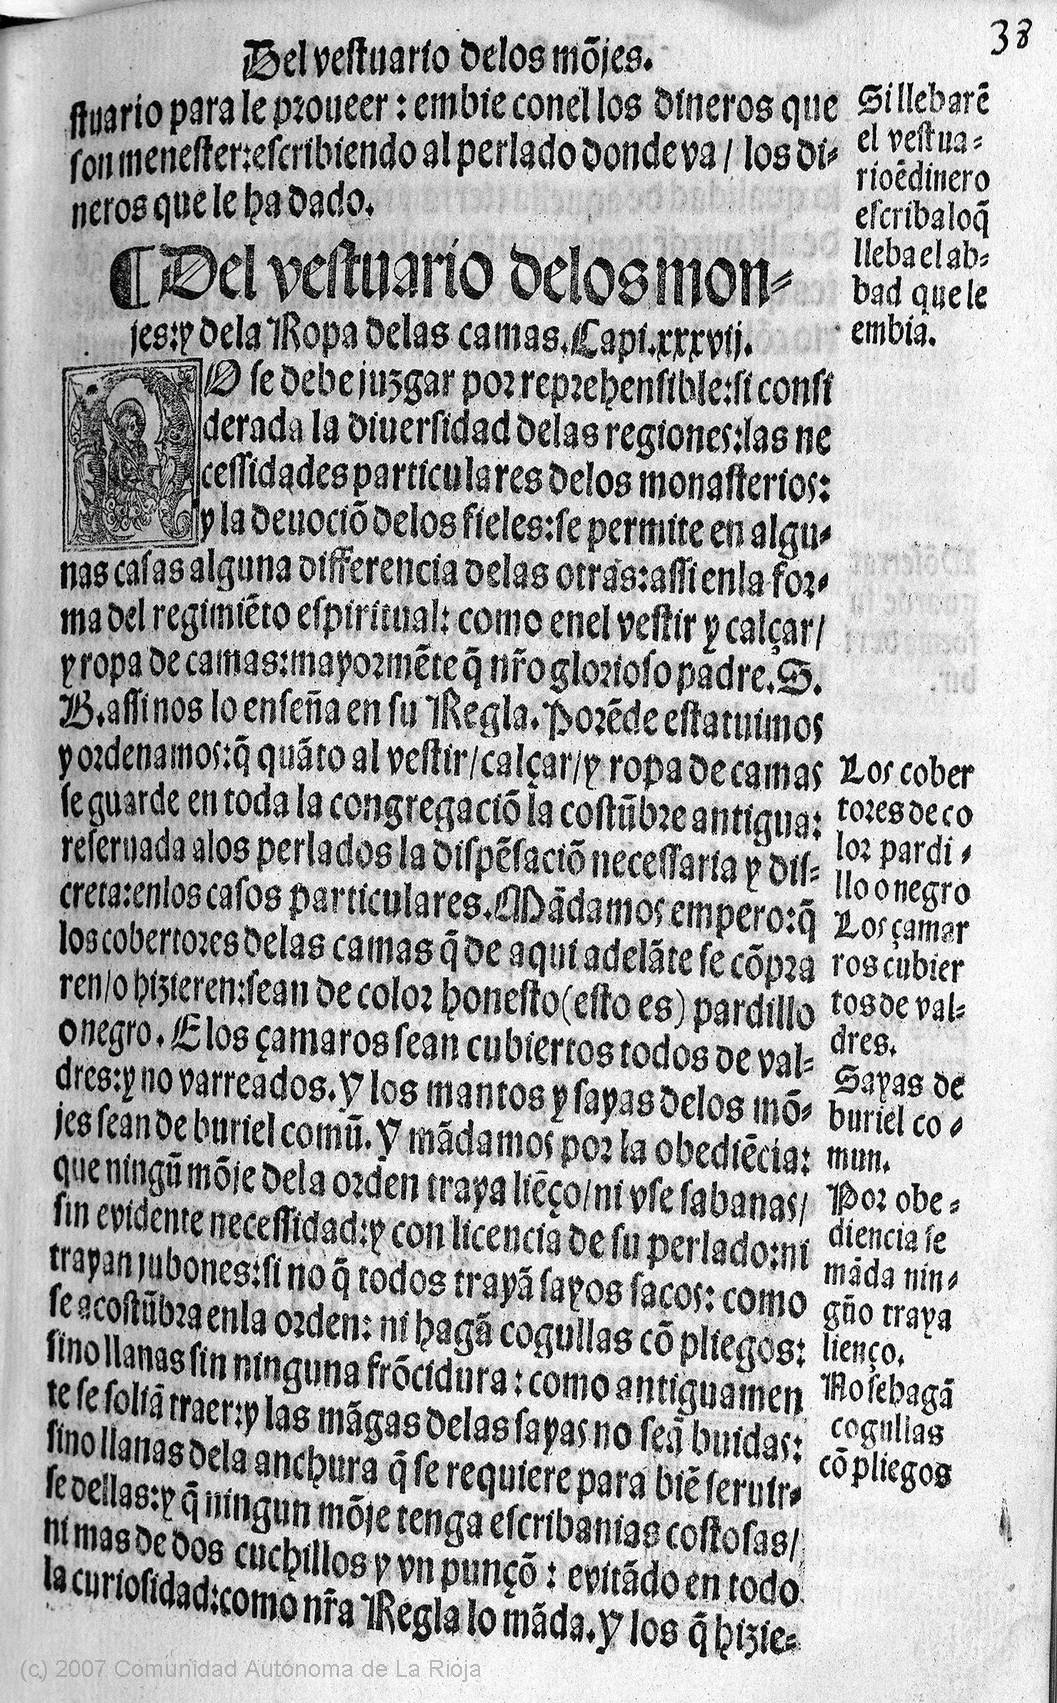 38
Del vestuario delos mõjes.
stuario para le proueer : embie conel los dineros que
son menester:escribiendo al perlado donde va / los di-
neros que le ha dado.
Si llebarẽ
el vestua-
rio ẽ dinero
escriba lo q̃
lleba el ab-
bad que le
embia.
¶ Del vestuario delos mon-
jes:y dela Ropa delas camas. Capi.xxxvij.
NO se debe juzgar por reprehensible:si consi
derada la diuersidad delas regiones:las ne
cessidades particulares delos monasterios:
y la deuociõ delos fieles:se permite en algu-
nas casas alguna differencia delas otras:assi enla for-
ma del regimiẽto espiritual: como enel vestir y calçar/
y ropa de camas:mayormẽte q̃ nr̃o glorioso padre. S.
B. assi nos lo enseña en su Regla. Porẽde estatuimos
y ordenamos:q̃ quãto al vestir/calçar/y ropa de camas
se guarde en toda la congregaciõ la costũbre antigua:
reseruada alos perlados la dispẽsaciõ necessaria y dis-
creta:enlos casos particulares. Mãdamos empero:q̃
los cobertores delas camas q̃ de aqui adelãte se cõpra
ren/o hizieren:sean de color honesto(esto es) pardillo
o negro. E los çamaros sean cubiertos todos de val-
dres:y no varreados. Y los mantos y sayas delos mõ-
jes sean de buriel comũ. Y mãdamos por la obediẽcia:
que ningũ mõje dela orden traya liẽço/ni vse sabanas/
sin evidente necessidad:y con licencia de su perlado:ni
trayan jubones:si no q̃ todos trayã sayos sacos: como
se acostũbra enla orden: ni hagã cogullas cõ pliegos:
sino llanas sin ninguna frõcidura : como antiguamen
te se soliã traer:y las mãgas delas sayas no seã buidas:
sino llanas dela anchura q̃ se requiere para biẽ seruir-
se dellas:y q̃ ningun mõje tenga escribanias costosas/
ni mas de dos cuchillos y vn punçõ : evitãdo en todo
la curiosidad:como nr̃a Regla lo mãda. Y los q̃ hizie-
Los cober
tores de co
lor pardi -
llo o negro
Los çamar
ros cubier
tos de val-
dres.
Sayas de
buriel co -
mun.
Por obe -
diencia se
mãda nin-
gũo traya
lienço.
No se hagã
cogullas
cõ pliegos
(c) 2007 Comunidad Autónoma de La Rioja